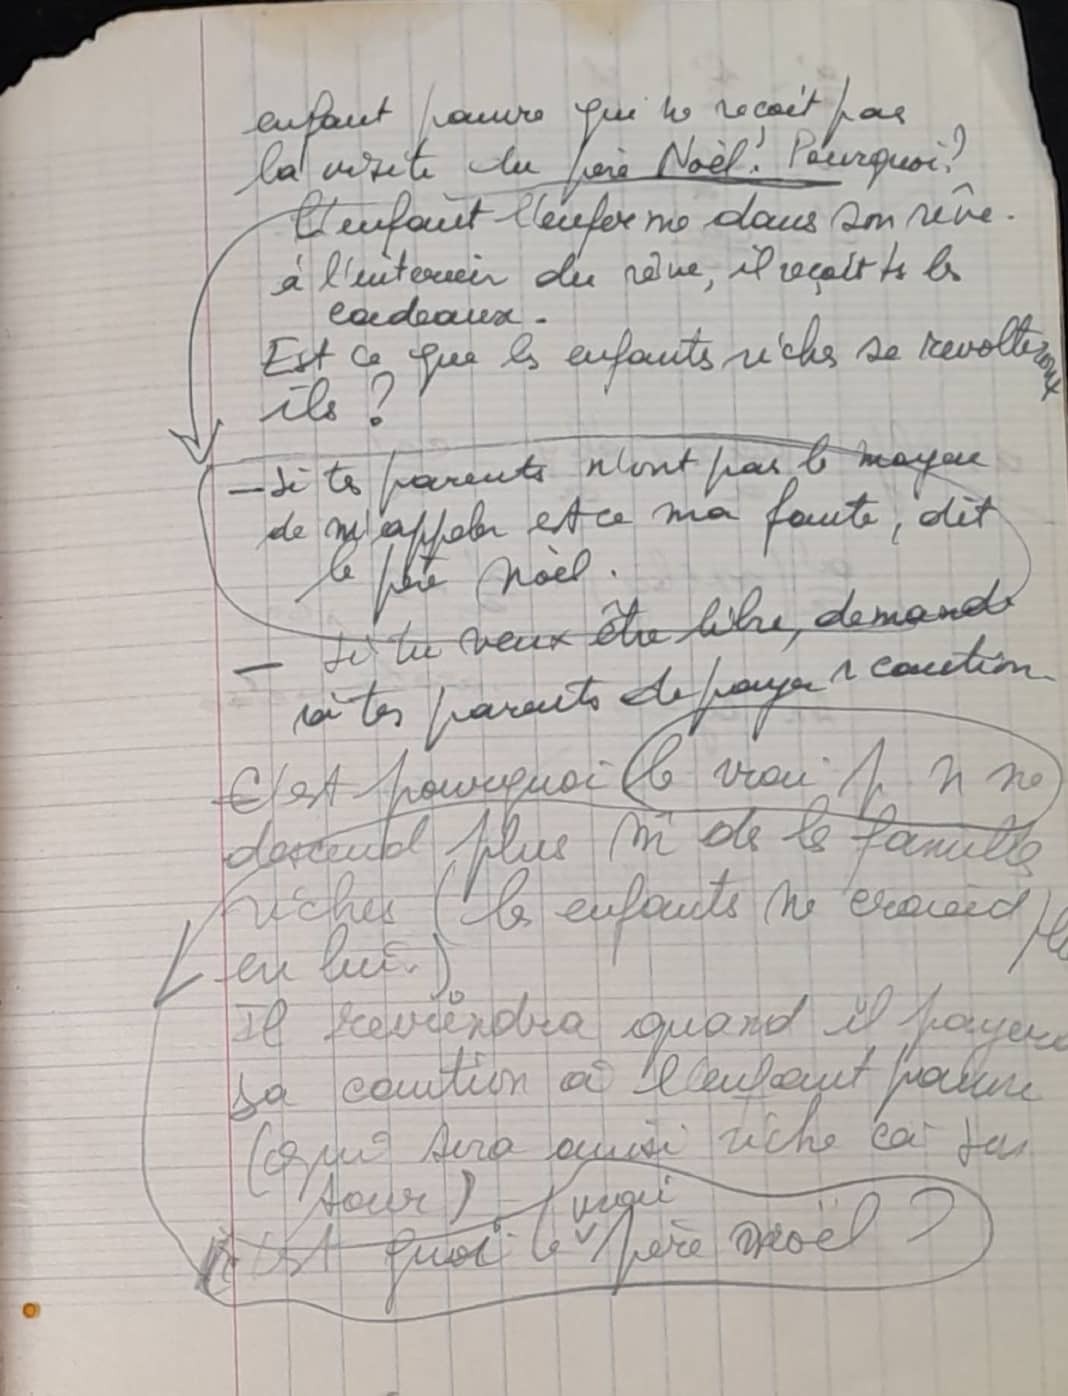 enfant pauvre qui ne reçoit pas
la visite du père Noël! Pourquoi?
L'enfant l'enferme dans son rêve.
à l'interieur du rêve, il reçoit ts les
cadeaux.
Est ce que les enfants riches se revolteront
ils ?
- Si tes parents n'ont pas le moyen
de m'appeler est ce ma faute, dit
le père Noël.
- Si tu veux être libre, demande
à tes parents de payer 1 caution.
C'est pourquoi le vrai p n ne
descend plus m̂ de les familles
riches (les enfants ne croient plus
en lui.)
Il reviendra quand il payera
sa caution à l'enfant pauvre
(qui sera aussi riche à son
tour)
c'est quoi le vrai père noël ?